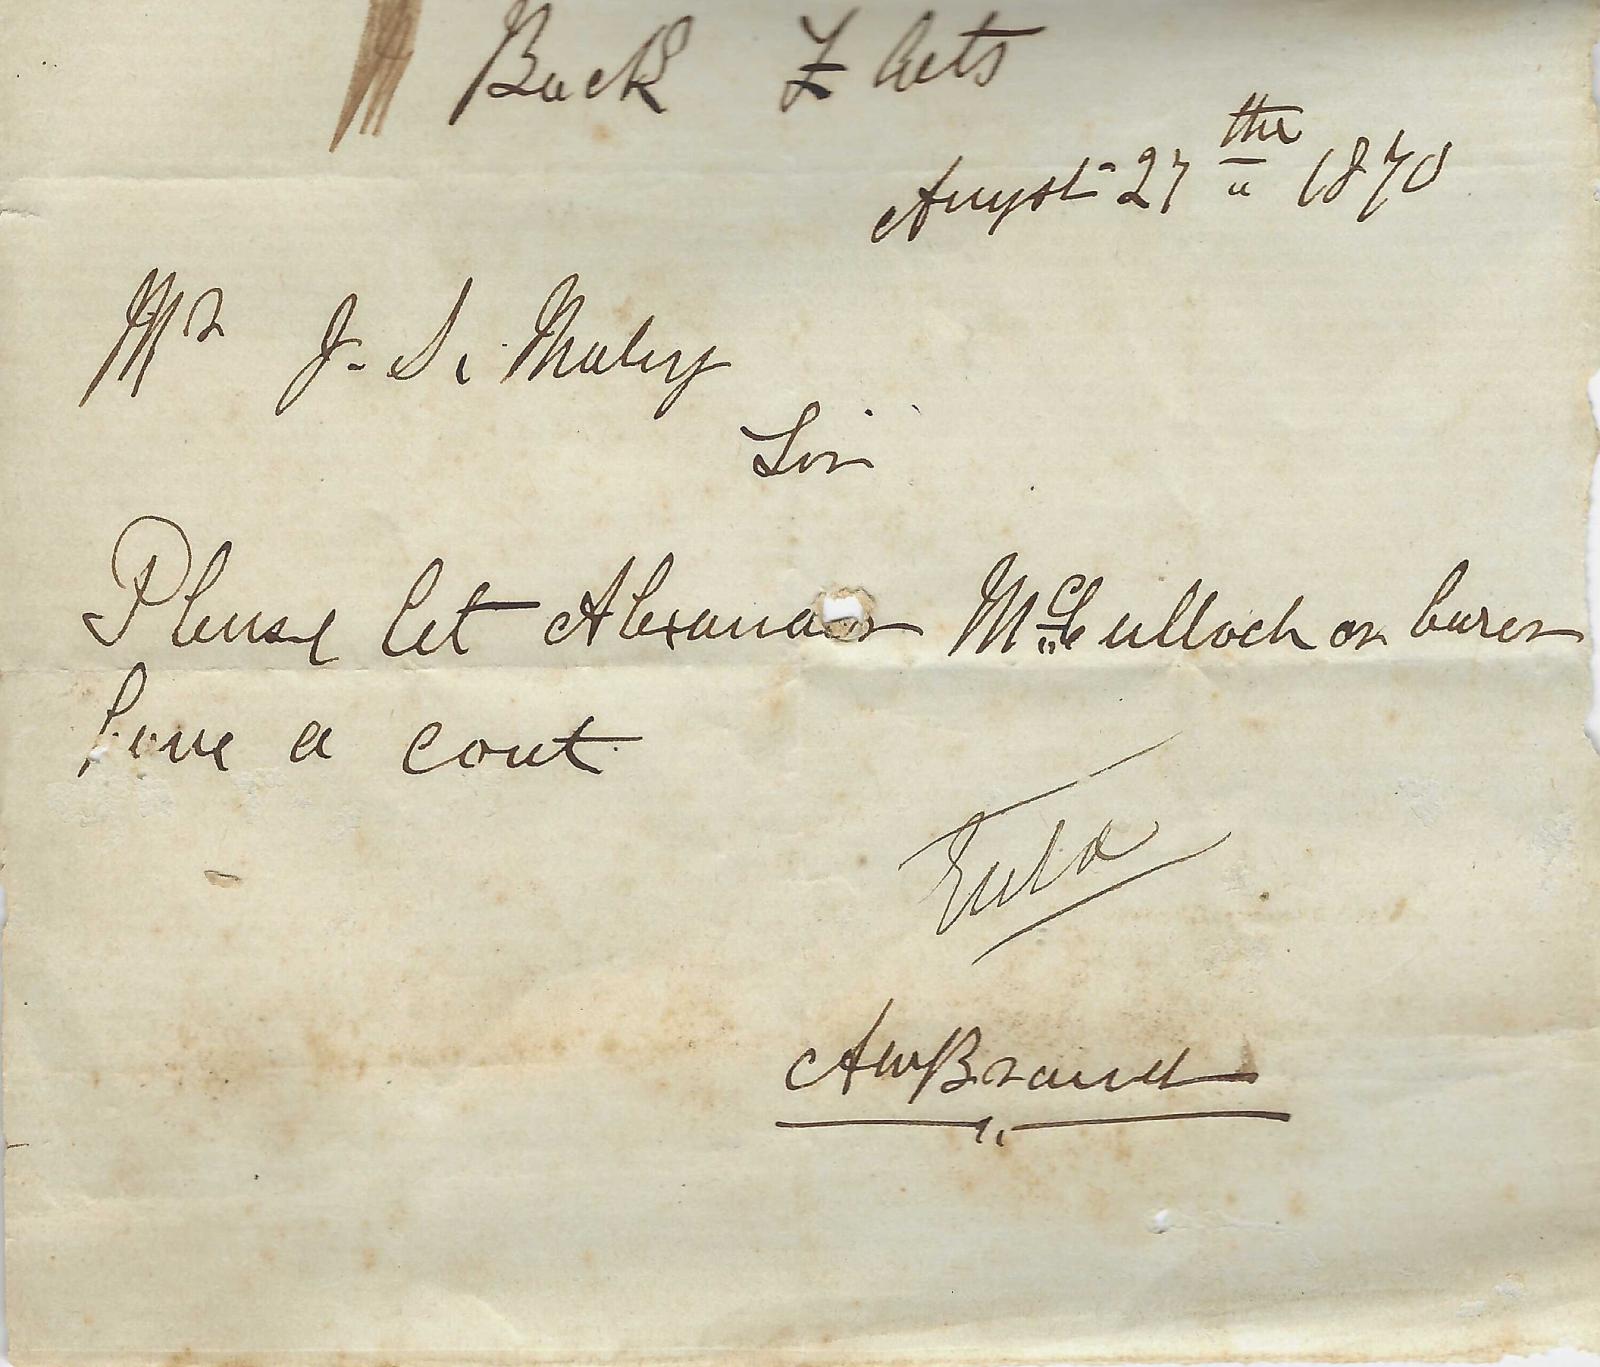 Back Flats
August 27th 1870
Mr J. S. Maby
Sir
Please let Alexander McCulloch or barer
have a coat
AW Brand